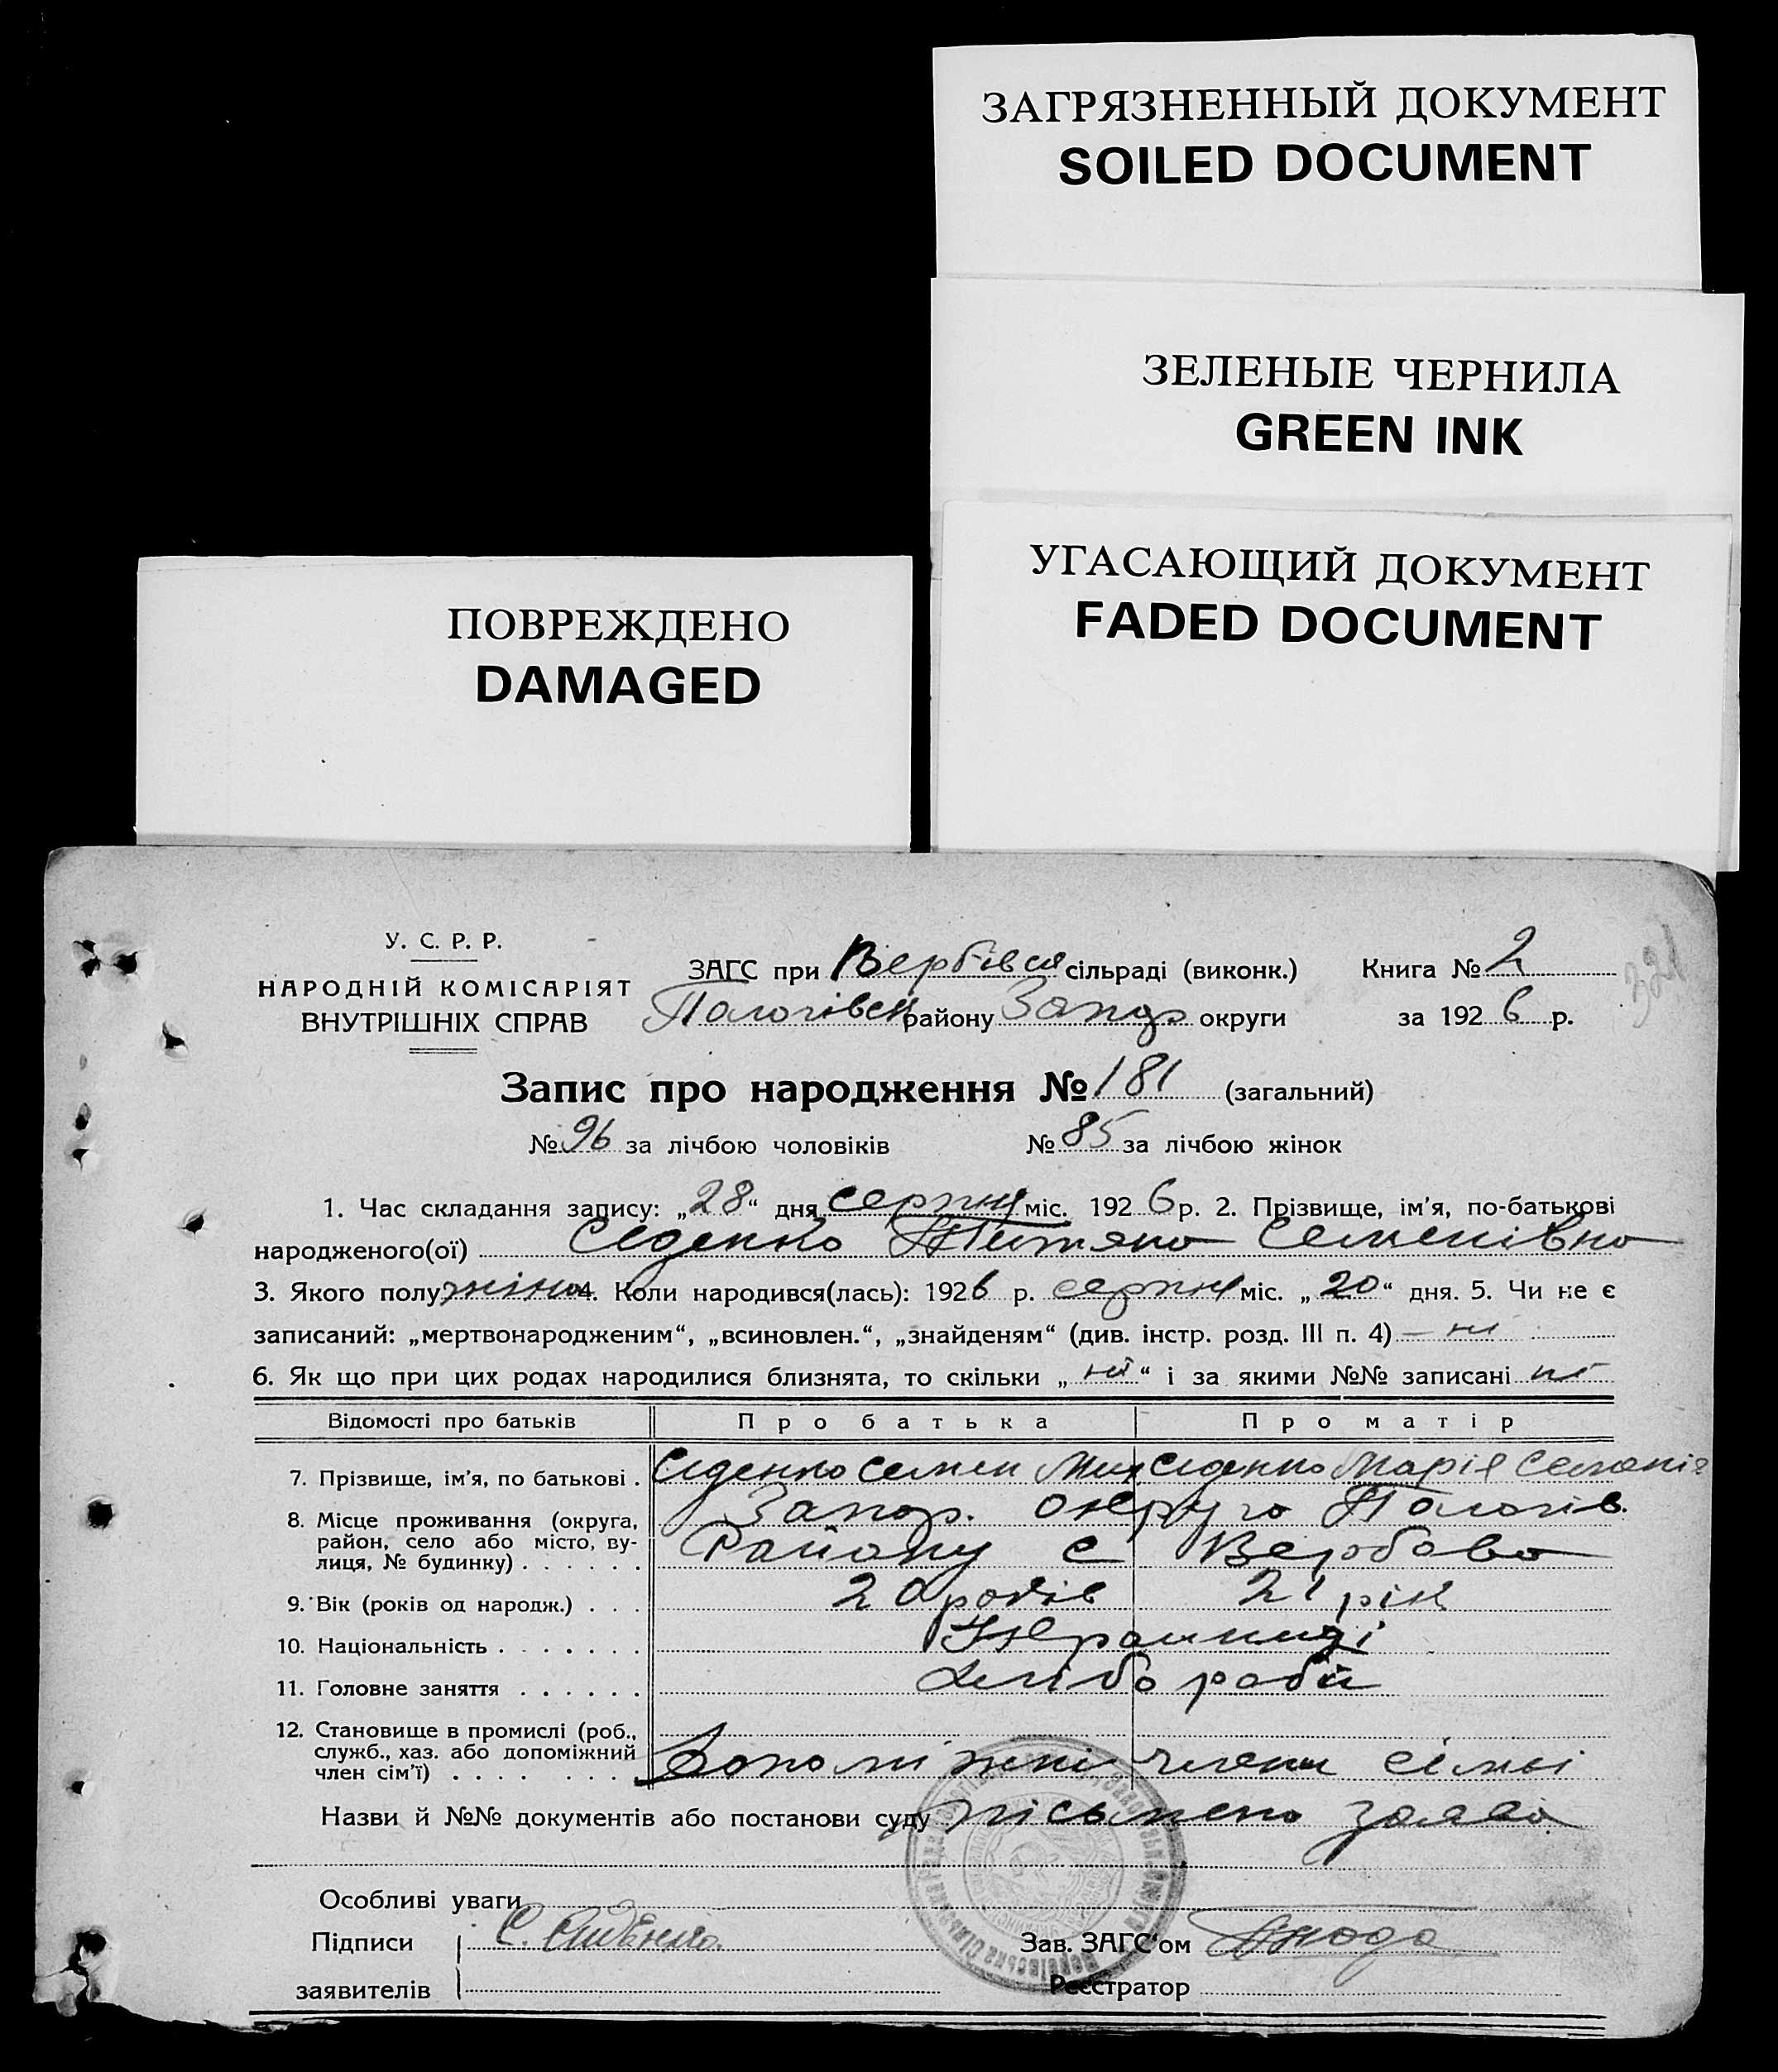 ЗАГРЯЗНЕННЫЙ ДОКУМЕНТ
SOILED DOCUMENT
ЗЕЛЕНЫЕ ЧЕРНИЛА
GREEN INK
УГАСАЮЩИЙ ДОКУМЕНТ
FADED DOCUMENT
ПОВРЕЖДЕНО
DAMAGED
У. С. Р. Р.
НАРОДНІЙ КОМІСАРІЯТ
ВНУТРІШНІХ СПРАВ
ЗАГС при Вербівся сільраді (виконк.) Книга № 2
321
Пологівськ району Запор округи за 1926 р.
Запис про народження № 181 (загальний)
№ 96 за лічбою чоловіків № 85 за лічбою жінок
1. Час складання запису: „28“ дня серпня міс. 1926 р. 2. Прізвище, ім'я, по-батькові
народженого(ої) Сіденко Титяна Семенівна
3. Якого полу жіноч 4. Коли народився(лась): 1926 р. серпня міс. „20“ дня. 5. Чи не є
записаний: „мертвонародженим“, „всиновлен.“, „знайденям“ (див. інстр. розд. III п. 4) – ні
6. Як що при цих родах народилися близнята, то скільки „ні“ і за якими №№ записані ні
Відомості про батьків Про батька Про матір
7. Прізвище, ім'я, по батькові . Сіденко Семен Мих Сіденко Марія Семенів
8. Місце проживання (округа, Запор. округа Пологів.
район, село або місто, ву- Району с Вербово
лиця, № будинку) . . . . . .
9. Вік (років од народж.) . . . 20 років 21 рік
10. Національність . . . . . . . Українці
11. Головне заняття . . . . . . Хлібороби
12. Становище в промислі (роб.,
служб., хаз. або допоміжний
член сім'ї) . . . . . . . . Допоміжні члени сімьі
Назви й №№ документів або постанови суду письмена заява
Особливі уваги
Підписи С. Сиденко. Зав. ЗАГС'ом
заявителів Реєстратор